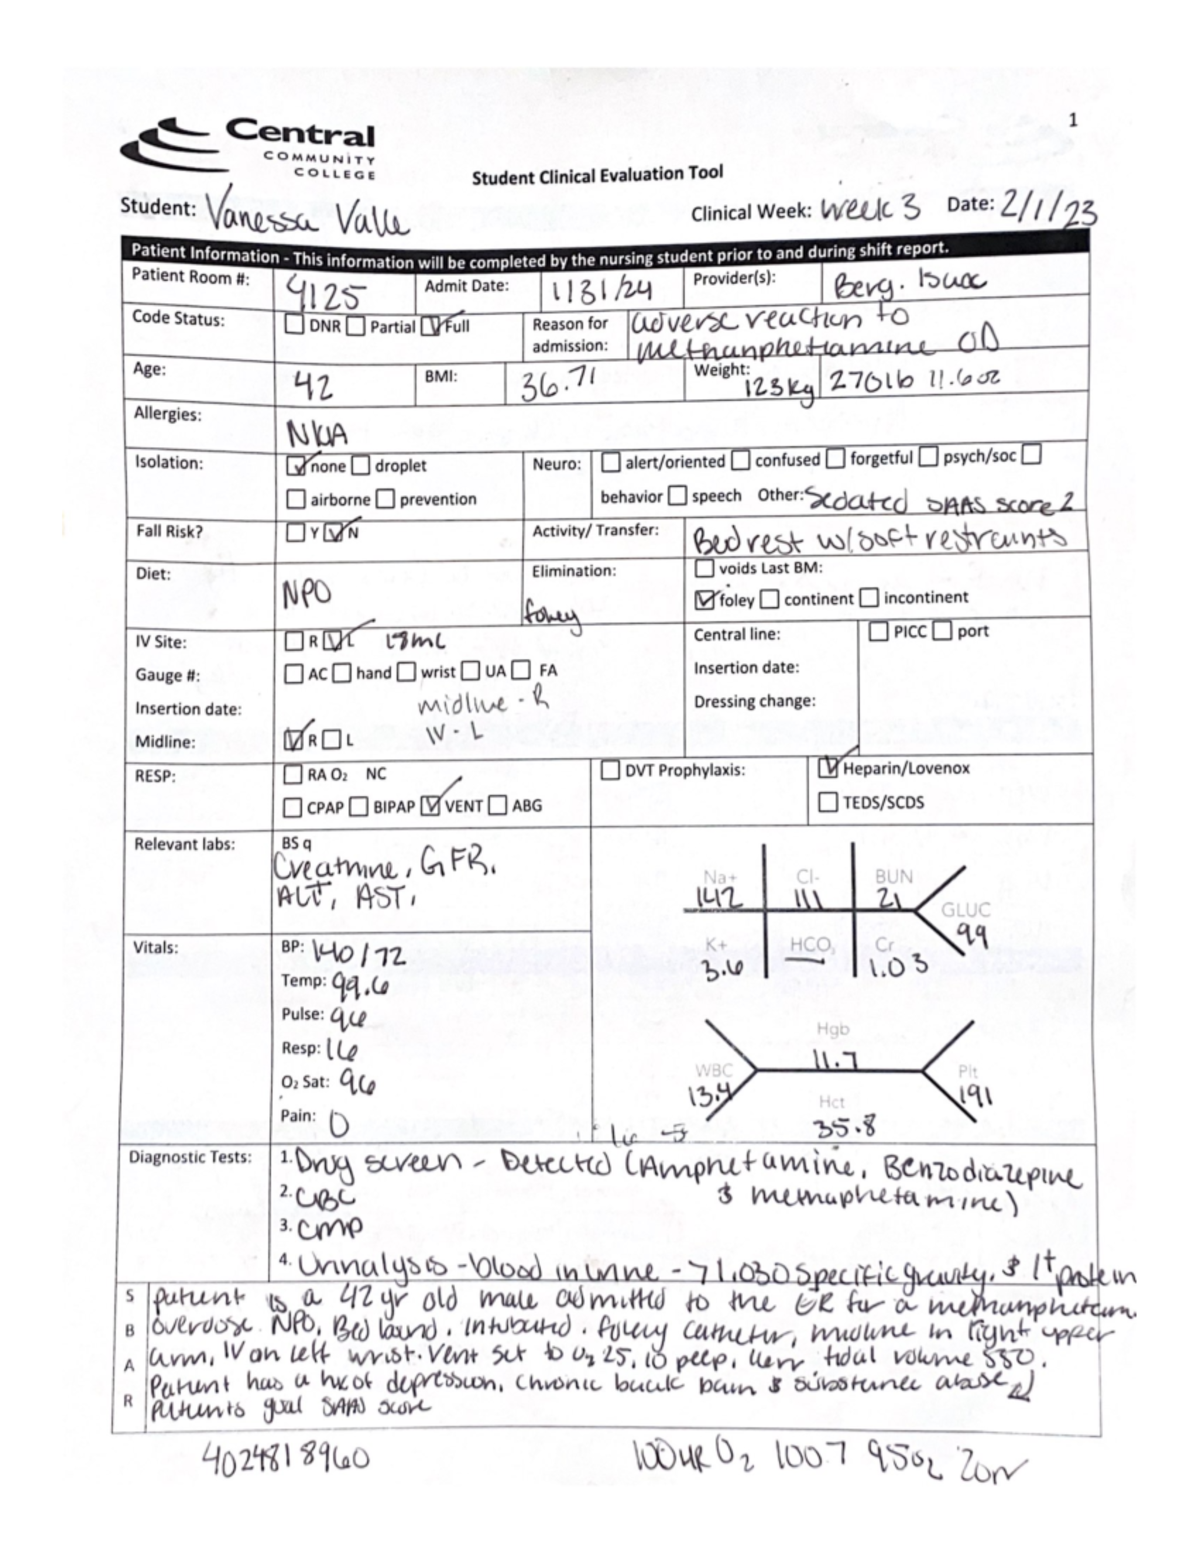 1
Central
COMMUNITY
COLLEGE
Student Clinical Evaluation Tool
Student: Vanessa Valle Clinical Week: Week 3 Date: 2/1/23
Patient Information - This information will be completed by the nursing student prior to and during shift report.
Patient Room #: 4125 Admit Date: 1/31/24 Provider(s): Berg. Isaac
Code Status: DNR Partial Full Reason for admission: adverse reaction to
methanphetiamine OD
Age: 42 BMI: 36.71 Weight: 123kg 270lb 11.6oz
Allergies: NKA
Isolation: none droplet Neuro: alert/oriented confused forgetful psych/soc
airborne prevention behavior speech Other: Sedated SAAS score 2
Fall Risk? Y N Activity/ Transfer: Bedrest w/soft restraunts
Diet: NPO Elimination: foley voids Last BM:
foley continent incontinent
IV Site: R L 18mL Central line: PICC port
Gauge #: AC hand wrist UA FA Insertion date:
Insertion date: midline - R Dressing change:
Midline: R L IV - L
RESP: RA O₂ NC DVT Prophylaxis: Heparin/Lovenox
CPAP BIPAP VENT ABG TEDS/SCDS
Relevant labs: BS q
Creatinine, GFR,
ALT, AST,
Na+ 142 Cl- 111 BUN 21 GLUC 99
K+ 3.6 HCO₃ — Cr 1.03
Vitals: BP: 140/72
Temp: 99.6
Pulse: 96
Resp: 16
O₂ Sat: 96
Pain: 0
Hgb 11.7
WBC 13.4 Plt 191
Hct 35.8
Diagnostic Tests: 1. Drug screen - Detected (Amphetamine, Benzodiazepine
2. CBC $ methaphetamine)
3. CMP
4. Urinalysis - blood in urine - >1.030 Specific gravity, $ 1+ protein
S patient is a 42 yr old male admitted to the ER for a methanphetam.
B overdose. NPO, Bed bound, intubated, foley catheter, midline in right upper
A arm, IV on left wrist. Vent set to O₂ 25, 10 peep, tidal volume 550.
R Patient has a hx of depression, chronic back pain $ substance abuse
Patients goal SAAS score
4024818960
100 HR O₂ 100.7 95O₂